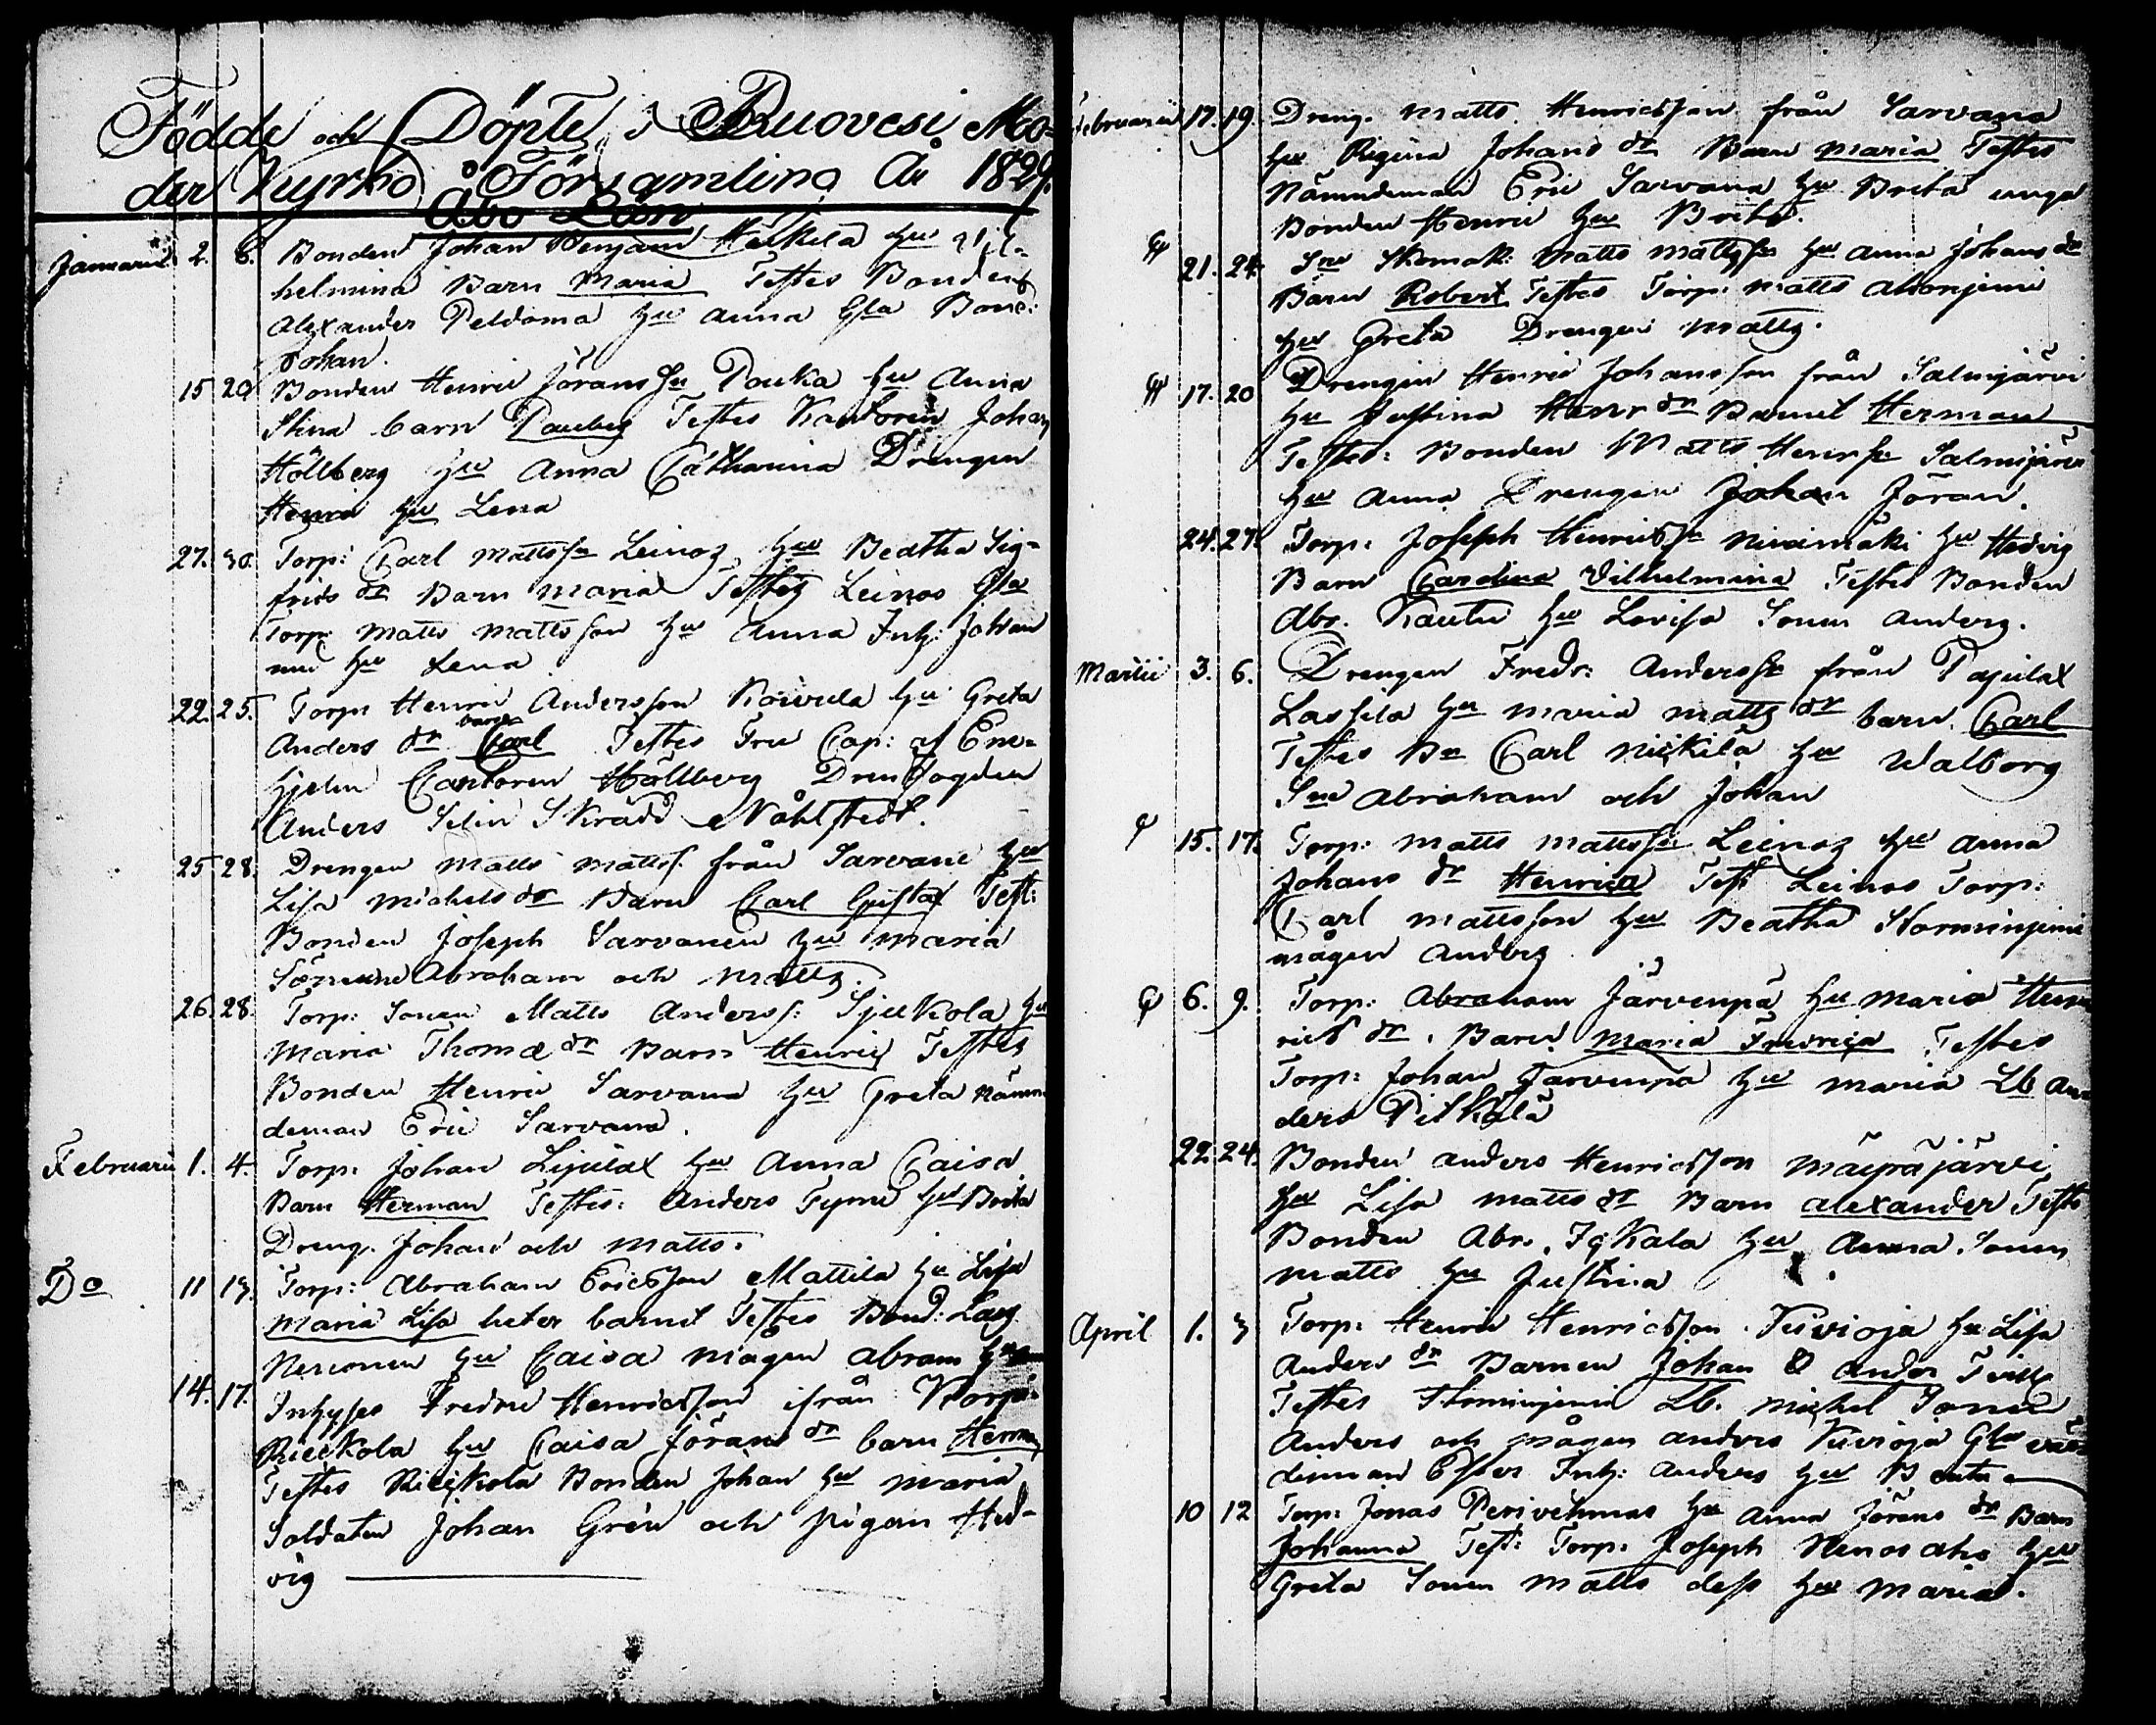 Födde och Döpte i Ruovesi Mo-
der Kyrko Församling År 1829.
Åbo Län
Januarii 2. 6. Bonden Johan Benjam Heikilä Hu Vil-
helmina Barn Maria Testes Bonden
Alexander Peldoma Hu Anna Gla Bond:
Johan.
15 20 Bonden Henric Jörans sn Pouka Hu Anna
Stina barn Testes Kantoren Johan
Höllberg Hu Anna Catharina Drengen
Henric Hu Lena
27. 30. Torp: Carl Mattssn Leinos Hu Beatha Sig-
frids dr Barn Maria Testes Leinos Gla
Torp: Matts Mattsson Hu Anna Inh: Johan
Hu Lena
22. 25. Torp Henric Andersson Koivula Hu Greta
Anders dr barn Carl Testes Fru Cap: af Ene-
hjelm Cantoren Hällberg Drenfogden
Anders Selin Skrädd Nåhlstedt.
25 28. Drengen Matts Mattss. från Sarvane Hu
Lisa Michels dr Barn Carl Gustaf Test:
Bonden Joseph Sarvanen Hu Maria
Sönerne Abraham och Matts.
26. 28. Torp: Sonen Matts Anderss: Sjukola Hu
Maria Thomæ dr Barn Henric Testes
Bonden Henric Sarvana Hu Greta Nämn
deman Eric Sarvana.
Februarii 1. 4. Torp: Johan Lijulax Hu Anna Caisa
Barn Herman Testes: Anders Tyrni Hu Brita
Dreng. Johan och Matts.
Do 11 13. Torp: Abraham Ericsson Mattila Hu Lisa
Maria Lisa heter barnet Testes Bond: Lars
Hu Caisa mågen Abram
14. 17. Inhyses Fredric Henricsson ifrån Korpi-
Hu Caisa Jörans dr barn Herman
Testes Bonden Johan Hu Maria
Soldaten Johan Grön och pigan Hed-
vig
Februarii 17. 19. Dreng. Matts Henricsson från Sarvana
Hu Regina Johans dr Barn Maria Testes
Nämndeman Eric Sarvana Hu Brita unga
Bonden Henric Hu Brita.
21. 24. Sne Skomak: Matts Mattssn Hu Anna Johans dr
Barn Robert Testes Torp: Matts Ahonjemi
Hu Greta Drengen Matts.
17. 20 Drengen Henric Johansson från Salmijärvi
Hu Justina Henr dr Barnet Herman
Testes: Bonden Matts Henrsn Salmijärvi
Hu Anna Drengen Johan Jöran.
24. 27. Torp: Joseph Henricssn Nivämäki Hu Hedvig
Barn Carolina Vilhelmina Testes Bonden
Abr. Kautu Hu Lovisa Sonen Anders.
Martii 3. 6. Drengen Fredr: Anderssn från Pajulax
Lassila Hu Maria Matts dr barn Carl
Testes Bn Carl Niekilä Hu Walborg
Sne Abraham och Johan
15. 17. Torp: Matts Mattssn Leinos Hu Anna
Johans dr Henrica Test Leinos Torp:
Carl Mattsson Hu Beatha Storminjemi
mågen Anders
6. 9. Torp: Abraham Järvenpä Hu Maria Hen
rics dr. Barn Maria Fredrica Testes
Torp: Johan Järvenpä Hu Maria Lb An-
ders Pitkälä
22. 24. Bonden Anders Henricsson Mäipäjärvi
Hu Lisa Matts dr Barn Alexander Tests
Bonden Abr. Hu Anna. Sonen
Matts Hu Justina
April 1. 3 Torp: Henric Henricsson Kuvioja Hu Lisa
Anders dr Barnen Johan & Anders Tvill
Testes Storminjemi Lb. Michel Sonen
Anders och mågen Anders Kuvioja Gla
Inh: Anders Hu Beata
10 12 Torp: Jonas Perivehmas Hu Anna Jörans dr Barn
Johanna Test: Torp: Joseph Nenos aho Hu
Greta Sonen Matts dess Hu Maria.